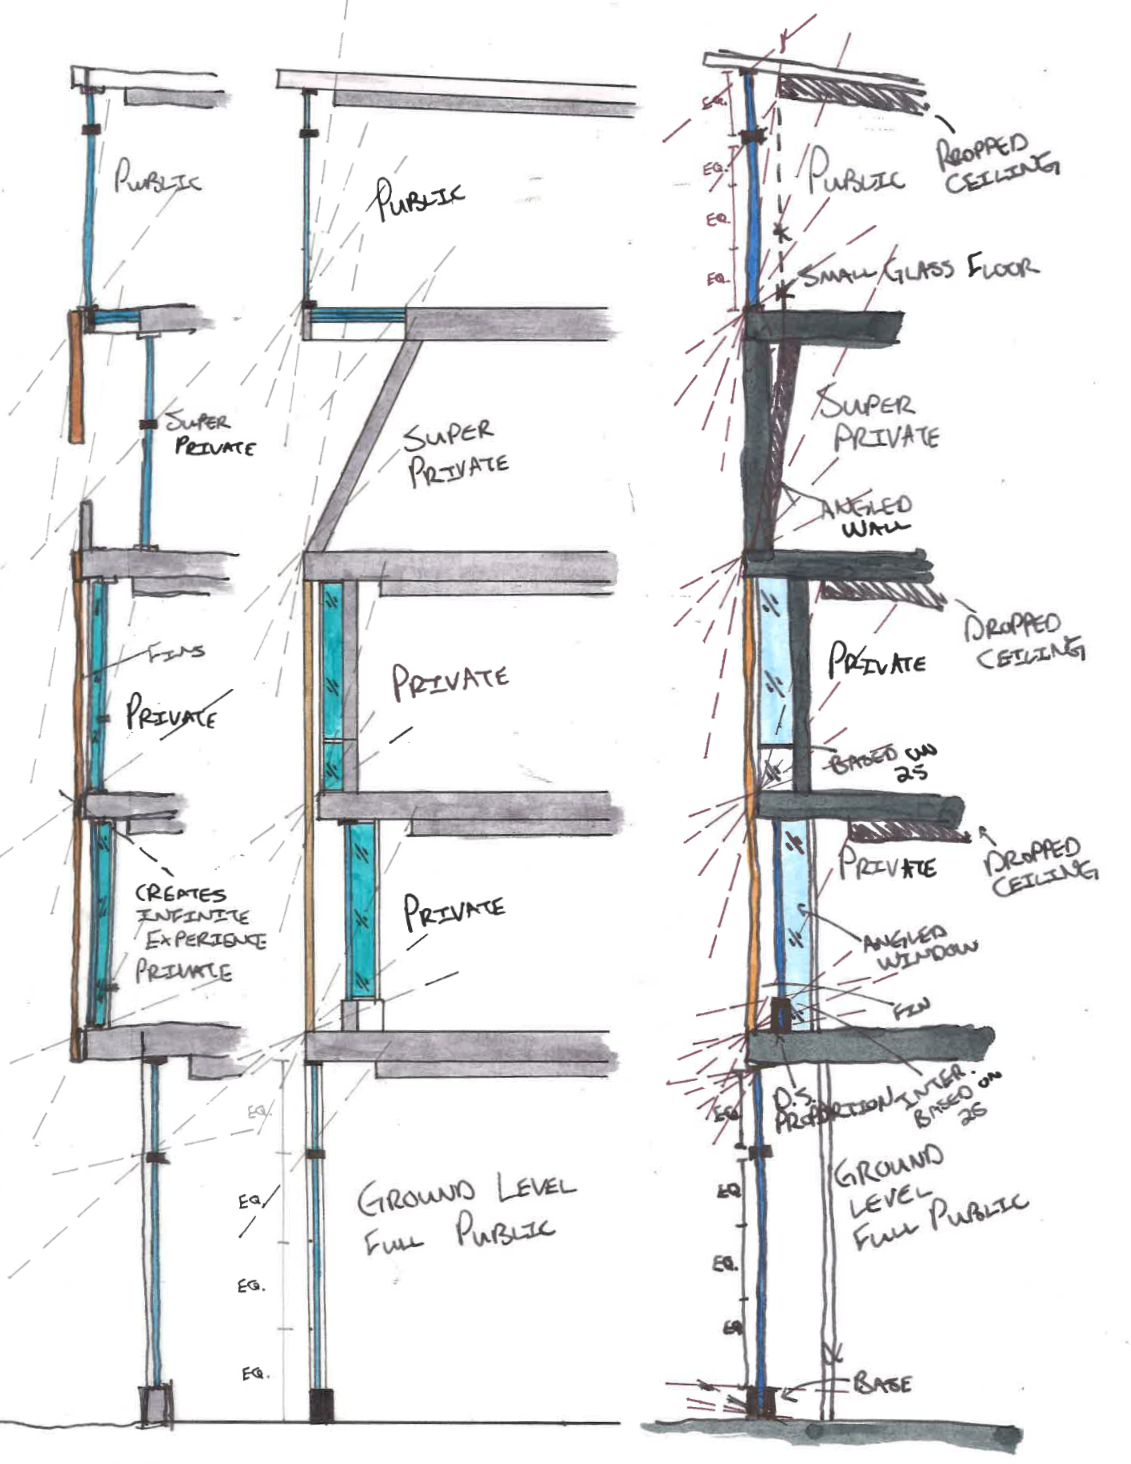 PUBLIC
SUPER
PRIVATE
FINS
PRIVATE
CREATES
INFINITE
EXPERIENCE
PRIVATE
PUBLIC
SUPER
PRIVATE
PRIVATE
PRIVATE
EQ.
EQ.
EQ.
EQ.
GROUND LEVEL
FULL PUBLIC
EQ.
EQ.
EQ.
EQ.
PUBLIC
DROPPED
CEILING
SMALL GLASS FLOOR
SUPER
PRIVATE
ANGLED
WALL
DROPPED
CEILING
PRIVATE
BASED ON
25
PRIVATE
DROPPED
CEILING
ANGLED
WINDOW
FIN
D.S.
PROPORTION
INTER.
BASED ON
25
EQ
EQ
EQ.
EQ
GROUND
LEVEL
FULL PUBLIC
BASE